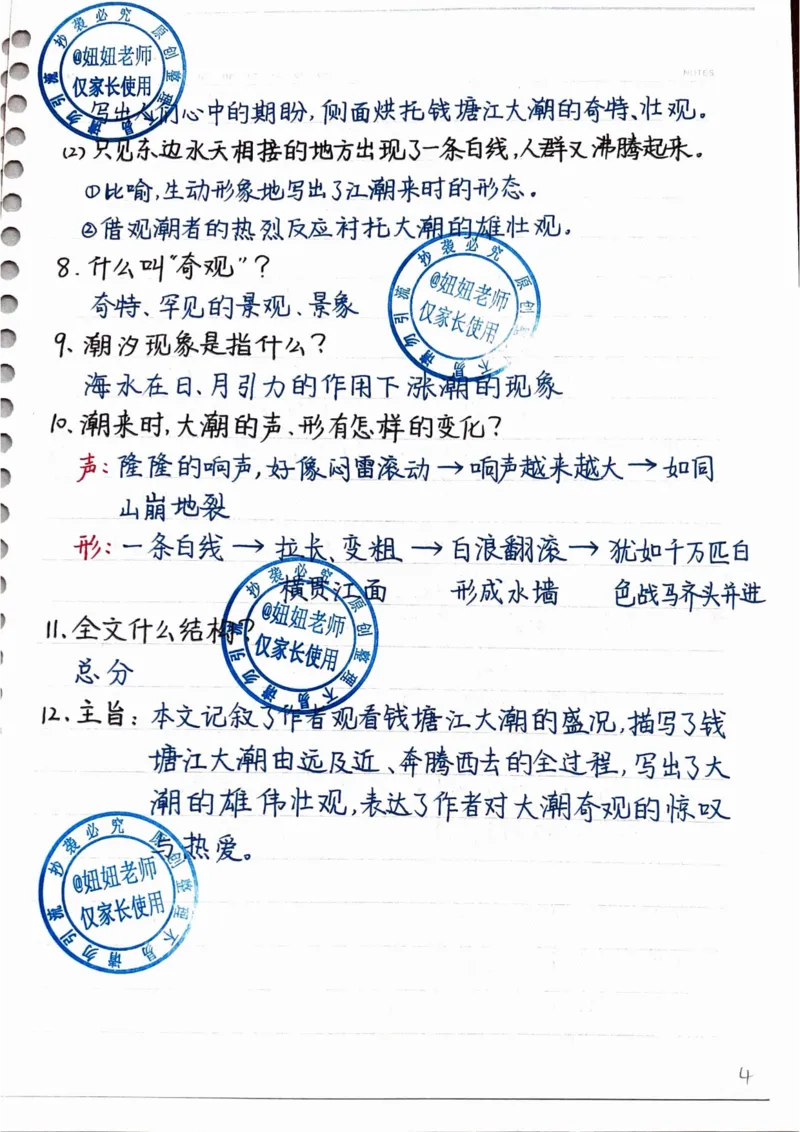 NOTES
写出人们心中的期盼,侧面烘托钱塘江大潮的奇特、壮观。
(2)只见东边水天相接的地方出现了一条白线,人群又沸腾起来。
①比喻,生动形象地写出了江潮来时的形态。
②借观潮者的热烈反应衬托大潮的雄壮观。
8.什么叫“奇观”?
奇特、罕见的景观、景象
9、潮汐现象是指什么?
海水在日、月引力的作用下涨潮的现象
10、潮来时,大潮的声、形有怎样的变化?
声:隆隆的响声,好像闷雷滚动→响声越来越大→如同
山崩地裂
形:一条白线→拉长、变粗→白浪翻滚→犹如千万匹白
横贯江面 形成水墙 色战马齐头并进
11、全文什么结构?
总分
12、主旨:本文记叙了作者观看钱塘江大潮的盛况,描写了钱
塘江大潮由远及近、奔腾西去的全过程,写出了大
潮的雄伟壮观,表达了作者对大潮奇观的惊叹
与热爱。
4
原创整理不易请勿引流抄袭必究
@妞妞老师
仅家长使用
原创整理不易请勿引流抄袭必究
@妞妞老师
仅家长使用
原创整理不易请勿引流抄袭必究
@妞妞老师
仅家长使用
原创整理不易请勿引流抄袭必究
@妞妞老师
仅家长使用